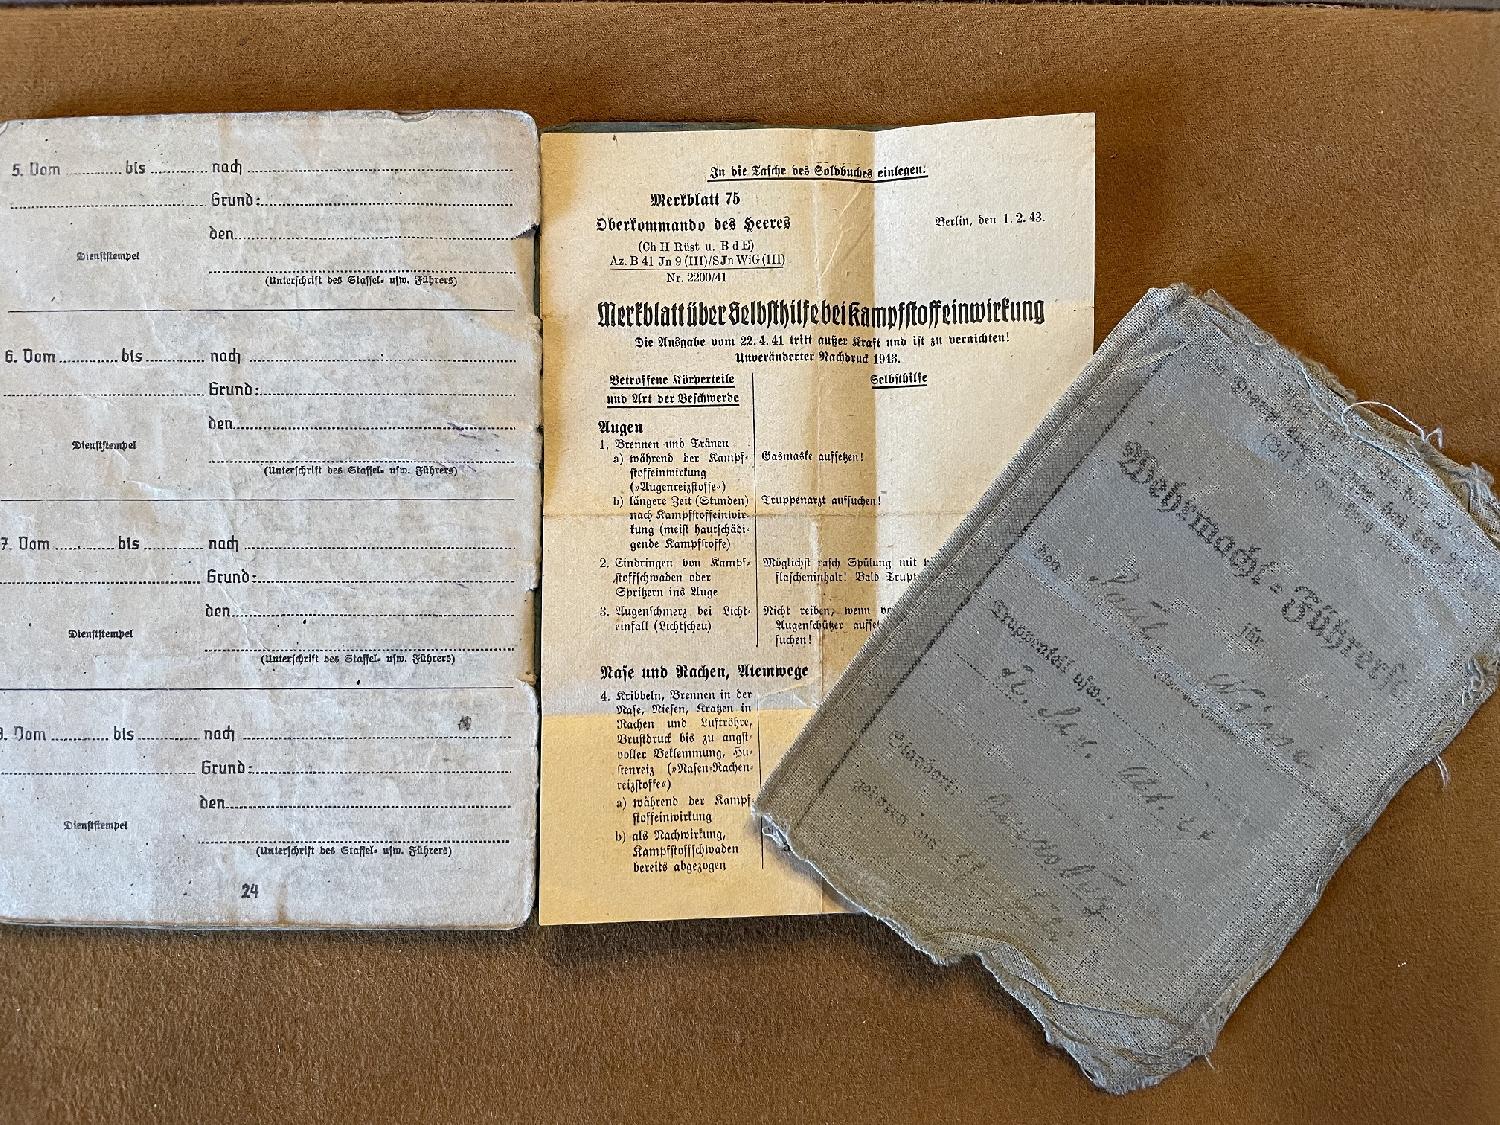 5. Vom ........... bis ........... nach
Grund:
den
Dienststempel
(Unterschrift des Staffel- usw. Führers)
6. Vom ........... bis ........... nach
Grund:
den
Dienststempel
(Unterschrift des Staffel- usw. Führers)
7. Vom ........... bis ........... nach
Grund:
den
Dienststempel
(Unterschrift des Staffel- usw. Führers)
Vom ........... bis ........... nach
Grund:
den
Dienststempel
(Unterschrift des Staffel- usw. Führers)
24
In die Tasche des Soldbuches einlegen!
Merkblatt 75
Oberkommando des Heeres
Berlin, den 1. 2. 43.
(Ch H Rüst u. B d E)
Az. B 41 Jn 9 (III)/SJn WiG (III)
Nr. 2200/41
Merkblatt über Selbsthilfe bei Kampfstoffeinwirkung
Die Ausgabe vom 22. 4. 41 tritt außer Kraft und ist zu vernichten!
Unveränderter Nachdruck 1943.
Betroffene Körperteile
und Art der Beschwerde
Selbsthilfe
Augen
1. Brennen und Tränen
a) während der Kampf-
stoffeinwirkung
(»Augenreizstoffe«)
Gasmaske aufsetzen!
b) längere Zeit (Stunden)
nach Kampfstoffeinwir-
kung (meist hautschädi-
gende Kampfstoffe)
Truppenarzt aufsuchen!
2. Eindringen von Kampf-
stoffschwaden oder
Spritzern ins Auge
Möglichst rasch Spülung mit
flascheninhalt! Bald
3. Augenschmerz bei Licht-
einfall (Lichtscheu)
Nicht reiben, wenn
Augenschützer
suchen!
Nase und Rachen, Atemwege
4. Kribbeln, Brennen in der
Nase, Niesen, Kratzen in
Rachen und Luftröhre,
Brustdruck bis zu angst-
voller Beklemmung, Hu-
stenreiz (»Nasen-Rachen-
reizstoffe«)
a) während der Kampf-
stoffeinwirkung
b) als Nachwirkung,
Kampfstoffschwaden
bereits abgezogen
Wehrmacht-Führersch
für
den
Truppenteil usw.:
Standort:
geboren am